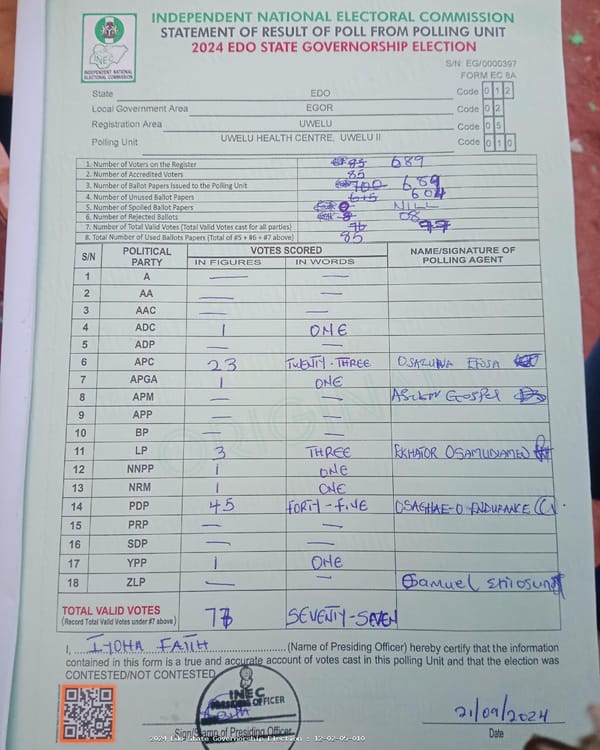 INDEPENDENT NATIONAL ELECTORAL COMMISSION
STATEMENT OF RESULT OF POLL FROM POLLING UNIT
2024 EDO STATE GOVERNORSHIP ELECTION
INEC
INDEPENDENT NATIONAL
ELECTORAL COMMISSION
S/N: EG/0000397
FORM EC 8A
State EDO Code 0 1 2
Local Government Area EGOR Code 0 2
Registration Area UWELU Code 0 5
Polling Unit UWELU HEALTH CENTRE, UWELU II Code 0 1 0
1. Number of Voters on the Register 689
2. Number of Accredited Voters 85
3. Number of Ballot Papers Issued to the Polling Unit 700 689
4. Number of Unused Ballot Papers 615 604
5. Number of Spoiled Ballot Papers NILL
6. Number of Rejected Ballots 08
7. Number of Total Valid Votes (Total Valid Votes cast for all parties) 77
8. Total Number of Used Ballots Papers (Total of #5 + #6 + #7 above) 85
S/N POLITICAL PARTY VOTES SCORED NAME/SIGNATURE OF POLLING AGENT
IN FIGURES IN WORDS
1 A — —
2 AA — —
3 AAC — —
4 ADC 1 ONE
5 ADP — —
6 APC 23 TWENTY-THREE EFOSA
7 APGA 1 ONE
8 APM — — GOSPEL
9 APP — —
10 BP — —
11 LP 3 THREE EKHATOR OSAMUDIAMEN
12 NNPP 1 ONE
13 NRM 1 ONE
14 PDP 45 FORTY-FIVE OSAGHAE-O ENDURANCE
15 PRP — —
16 SDP — —
17 YPP 1 ONE
18 ZLP — — Samuel
TOTAL VALID VOTES 77 SEVENTY-SEVEN
(Record Total Valid Votes under #7 above)
I, IYOHA FAITH (Name of Presiding Officer) hereby certify that the information
contained in this form is a true and accurate account of votes cast in this polling Unit and that the election was
CONTESTED/NOT CONTESTED
INEC
PRESIDING OFFICER
21/09/2024
Sign/Stamp of Presiding Officer Date
2024 Edo State Governorship Election : 12-02-05-010
ORIGINAL